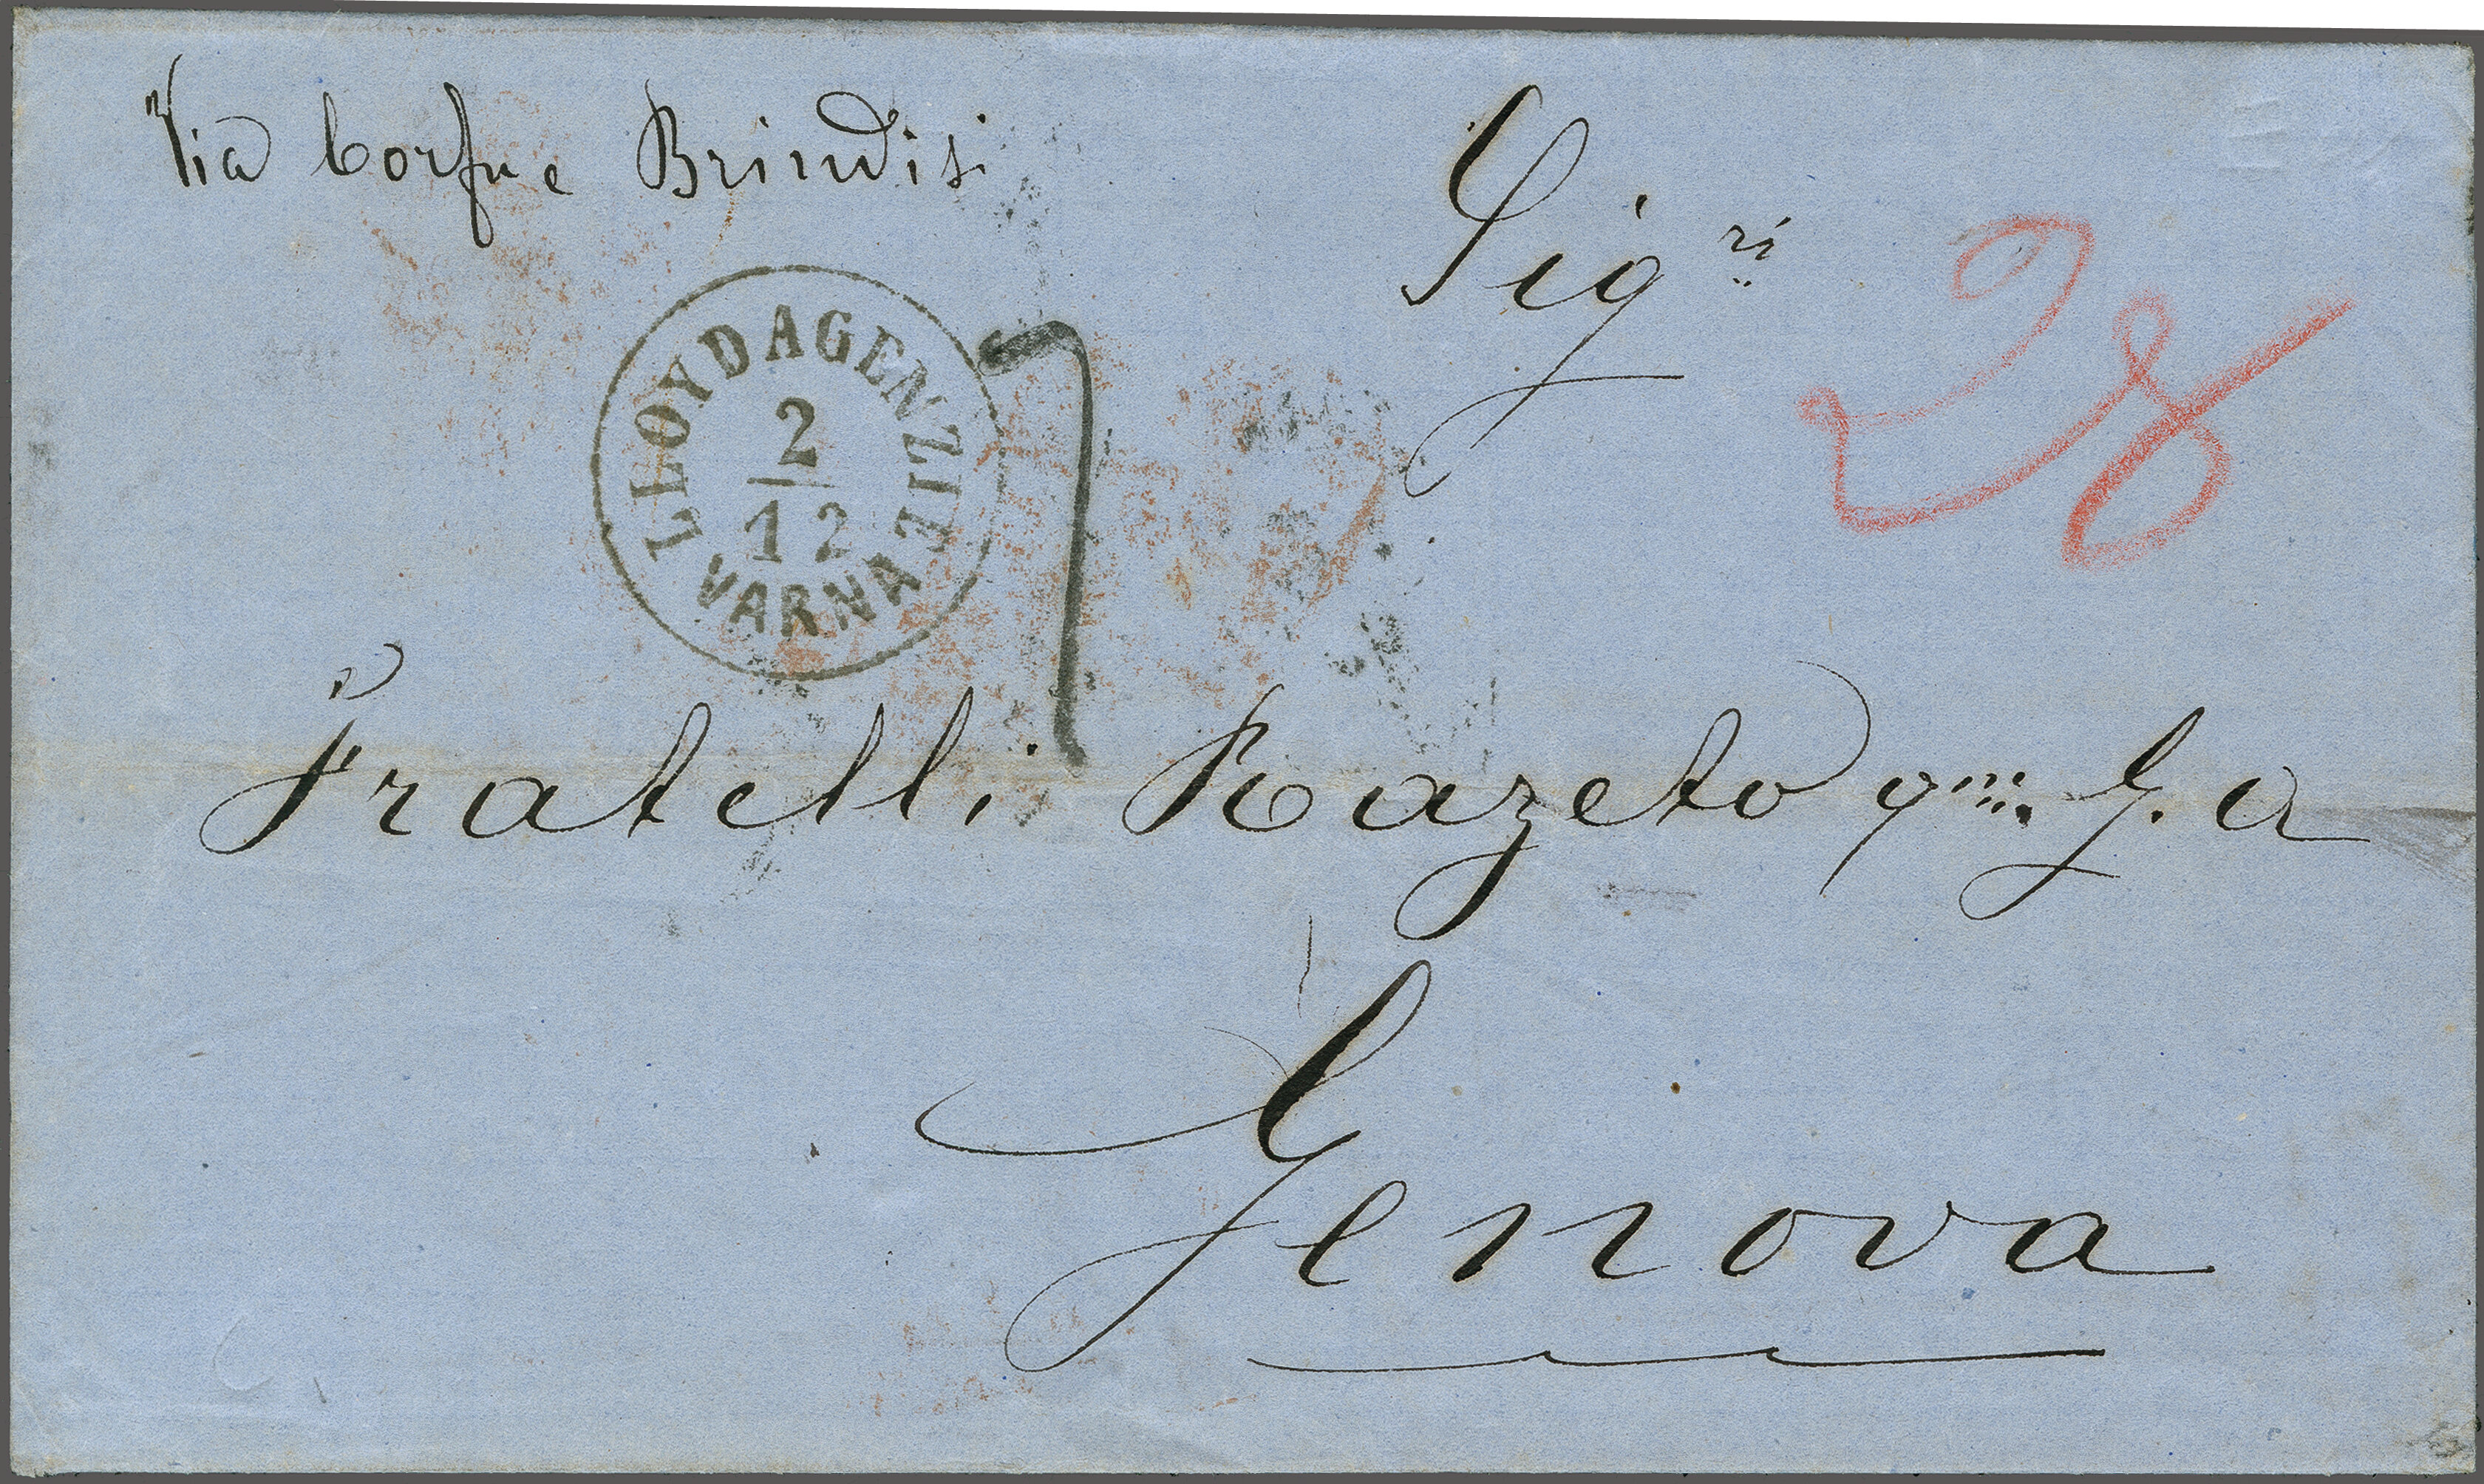 Via Corfu e Brindisi
Sig.ri
28
LLOYDAGENZIE
2
12
VARNA
7
Fratelli Razeto qm. G. a
Genova